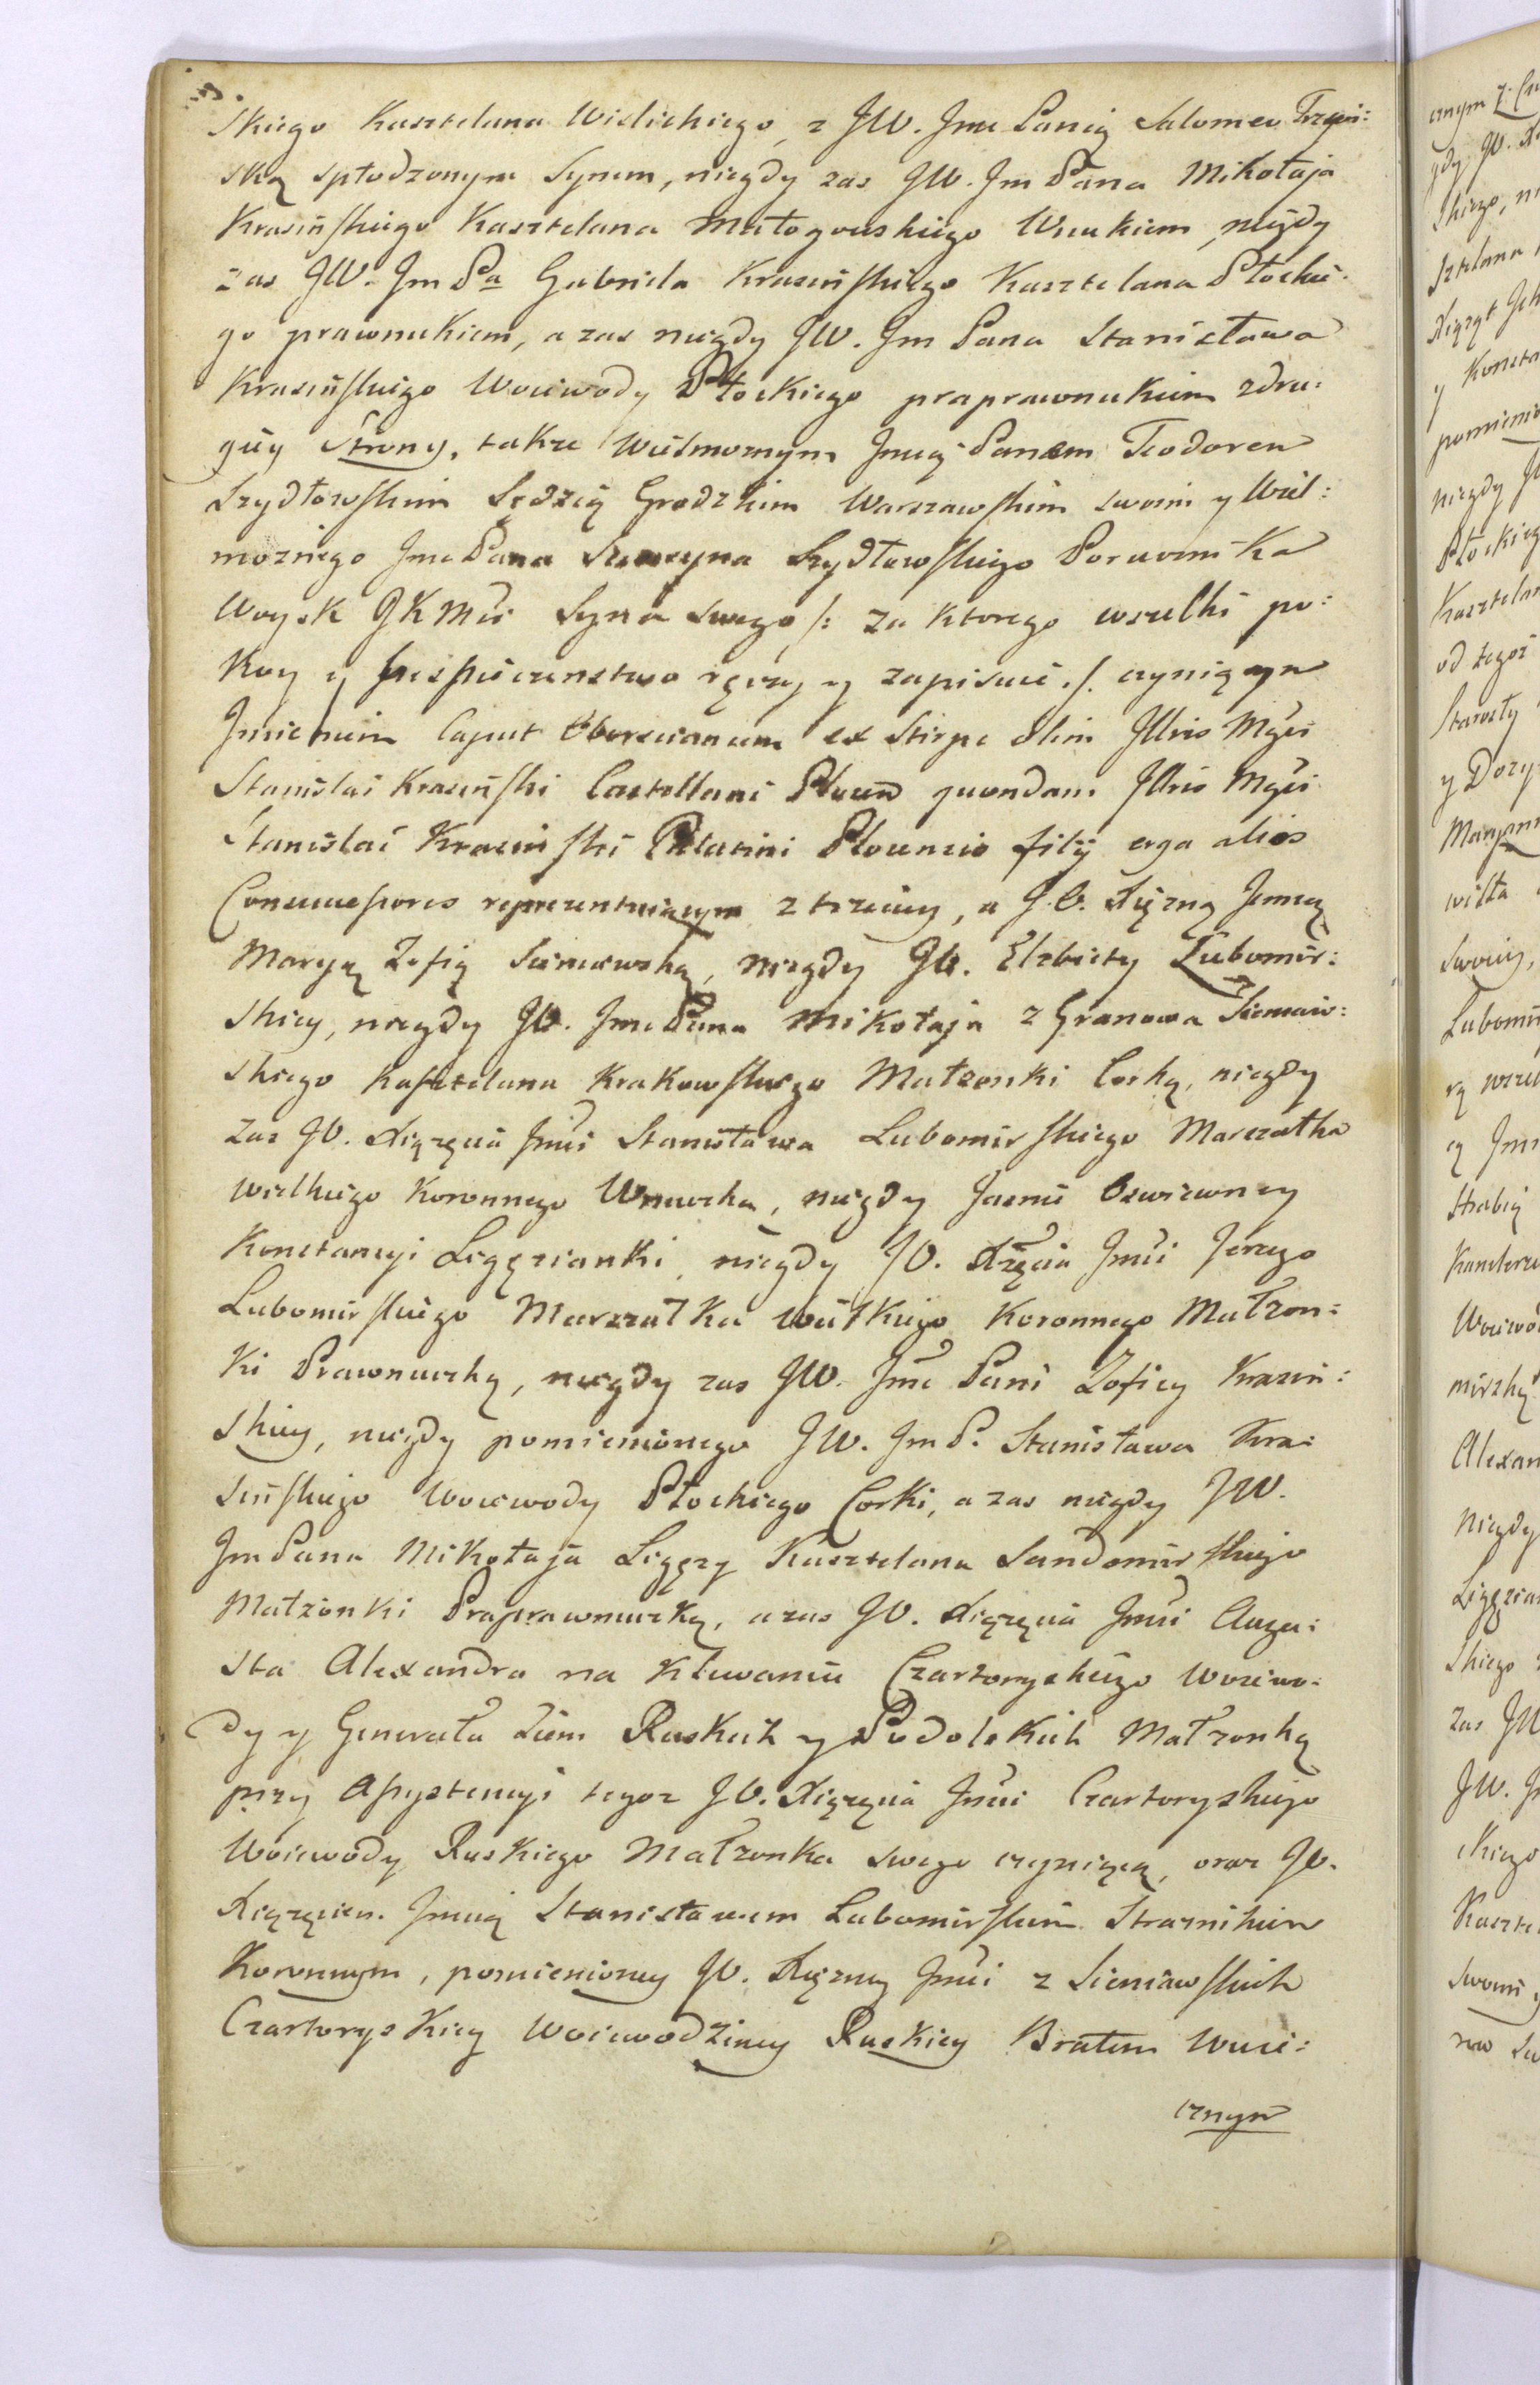 skiego Kasztelana Wislickiego, z JW. Jmc Panią Salomeą Trzciń:
ską spłodzonym Synem, niegdy zas JW. Jm Pana Mikołaja
Krasińskiego Kasztelana Małogoskiego Wnukiem, niegdy
zas JW. Jm Pa Gabriela Krasińskiego Kasztelana Płockie:
go prawnukiem, a zas niegdy JW. Jm Pana Stanisława
Krasińskiego Woiewody Płockiego praprawnukiem z dru:
giey Strony, takze Wielmoznym Jmcią Panem Teodorem
Szydłowskim Sędzią Grodzkim Warszawskim swoim y Wiel:
moznego Jmc Pana Szydłowskiego Porucznika
Woysk JKMci Syna swego /: za ktorego wszelki po:
koy y bespieczenstwo ręczy y zapisuie :/ czyniącym
Jmieniem Caput ex Stirpe olim Jllris Mgci
Stanislai Krasinski Castellani Plocen quondam Jllris Mgci
Stanislai Krasinski Palatini Plocensis filij erga alios
Consuccessores reprezentuiącym z trzeciey, a J.O. Xiężną Jmcią
Maryą Zofią Sieniawską, niegdy JO. Elzbiety Lubomir:
skiey, niegdy JW. Jmc Pana Mikołaja z Granowa Sieniaw:
skiego Kasztelana Krakowskiego Małzonki Corką, niegdy
zas JO. Xiązęcia Jmci Stanisława Lubomirskiego Marszałka
wielkiego Koronnego Wnuczką, niegdy Jasnie Oswieconey
Konstancyi Ligęzianki, niegdy JO. Xżęcia Jmci Jerzego
Lubomirskiego Marszałka Wielkiego Koronnego Małzon:
ki Prawnuczką, niegdy zas JW. Jmc Pani Zofiey Krasin:
skiey, niegdy pomienionego JW. Jm P. Stanisława Kra:
sińskiego Woiewody Płockiego Corki, a zas niegdy JW.
Jm Pana Mikołaja Ligęzy Kasztelana Sandomirskiego
Małzonki Praprawnuczką, a zas JO. Xiązęcia Jmci Augu:
sta Alexandra na Klewaniu Czartoryskiego Woiewo:
dy y Generała Ziem Ruskich y Podolskich Małzonką
przy Assystencyi tegoz JO. Xiązęcia Jmci Czartoryskiego
Woiewody Ruskiego Małzonka swego czyniącą, oraz JO.
Xiązęciem Jmcią Stanisławem Lubomirskim Straznikiem
Koronnym, pomienioney JO. Xiężney Jmci z Sieniawskich
Czartoryskiey Woiewodziney Ruskiey Bratem Wuie:
cznym